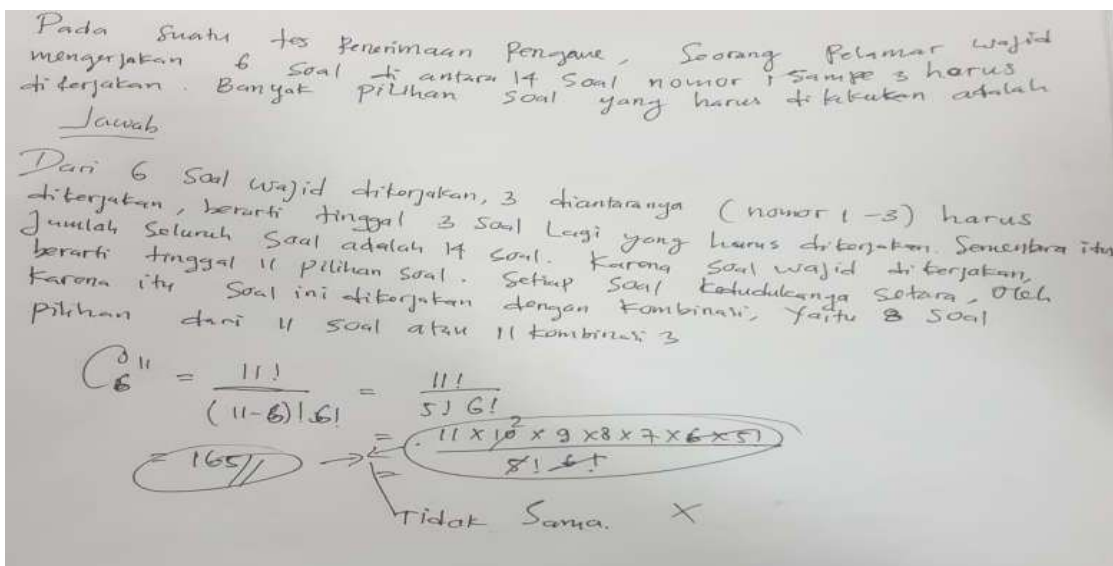 Pada Suatu tes Penerimaan Pengawe, Seorang Pelamar wajid
mengerjakan 6 Soal di antara 14 Soal nomor 1 Sampe 3 harus
dikerjakan. Banyak pilihan Soal yang harus di adalah
Jawab
Dari 6 Soal wajid dikerjakan, 3 diantaranya (nomor 1-3) harus
dikerjakan, berarti tinggal 3 Soal Lagi yang harus dikerjakan. Sementara itu
Jumlah Seluruh Soal adalah 14 Soal. Karena Soal wajid dikerjakan,
berarti tinggal 11 pilihan Soal. Setiap Soal Kedudukanga Setara, Oleh
Karena itu Soal ini dikerjakan dengan Kombinasi, Yaitu 8 Soal
Pilihan dari 11 Soal atau 11 Kombinasi 3
C 11 6 = 11! / (11-6)! 6! = 11! / 5! 6!
= 11 x 10 x 9 x 8 x 7 x 6 x 5!
= 165 //
Tidak Sama. X